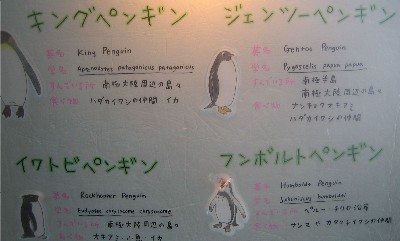 キングペンギン
英名 King Penguin
学名 Aptenodytes patagonicus patagonicus
すんでいるところ 南極大陸周辺の島々
食べもの ハダカイワシの仲間 イカ
ジェンツーペンギン
英名 Gentoo Penguin
学名 Pygoscelis papua papua
すんでいるところ 南極半島
南極大陸周辺の島々
食べもの ナンキョクオキアミ
ハダカイワシの仲間
イワトビペンギン
英名 Rockhopper Penguin
学名 Eudyptes chrysocome chrysocome
すんでいるところ 南極大陸周辺の島々
食べもの オキアミ・小魚・イカ
フンボルトペンギン
英名 Humboldt Penguin
学名 Spheniscus humboldti
すんでいるところ ペルー、チリの沿岸
食べもの サンマや カタクチイワシの仲間